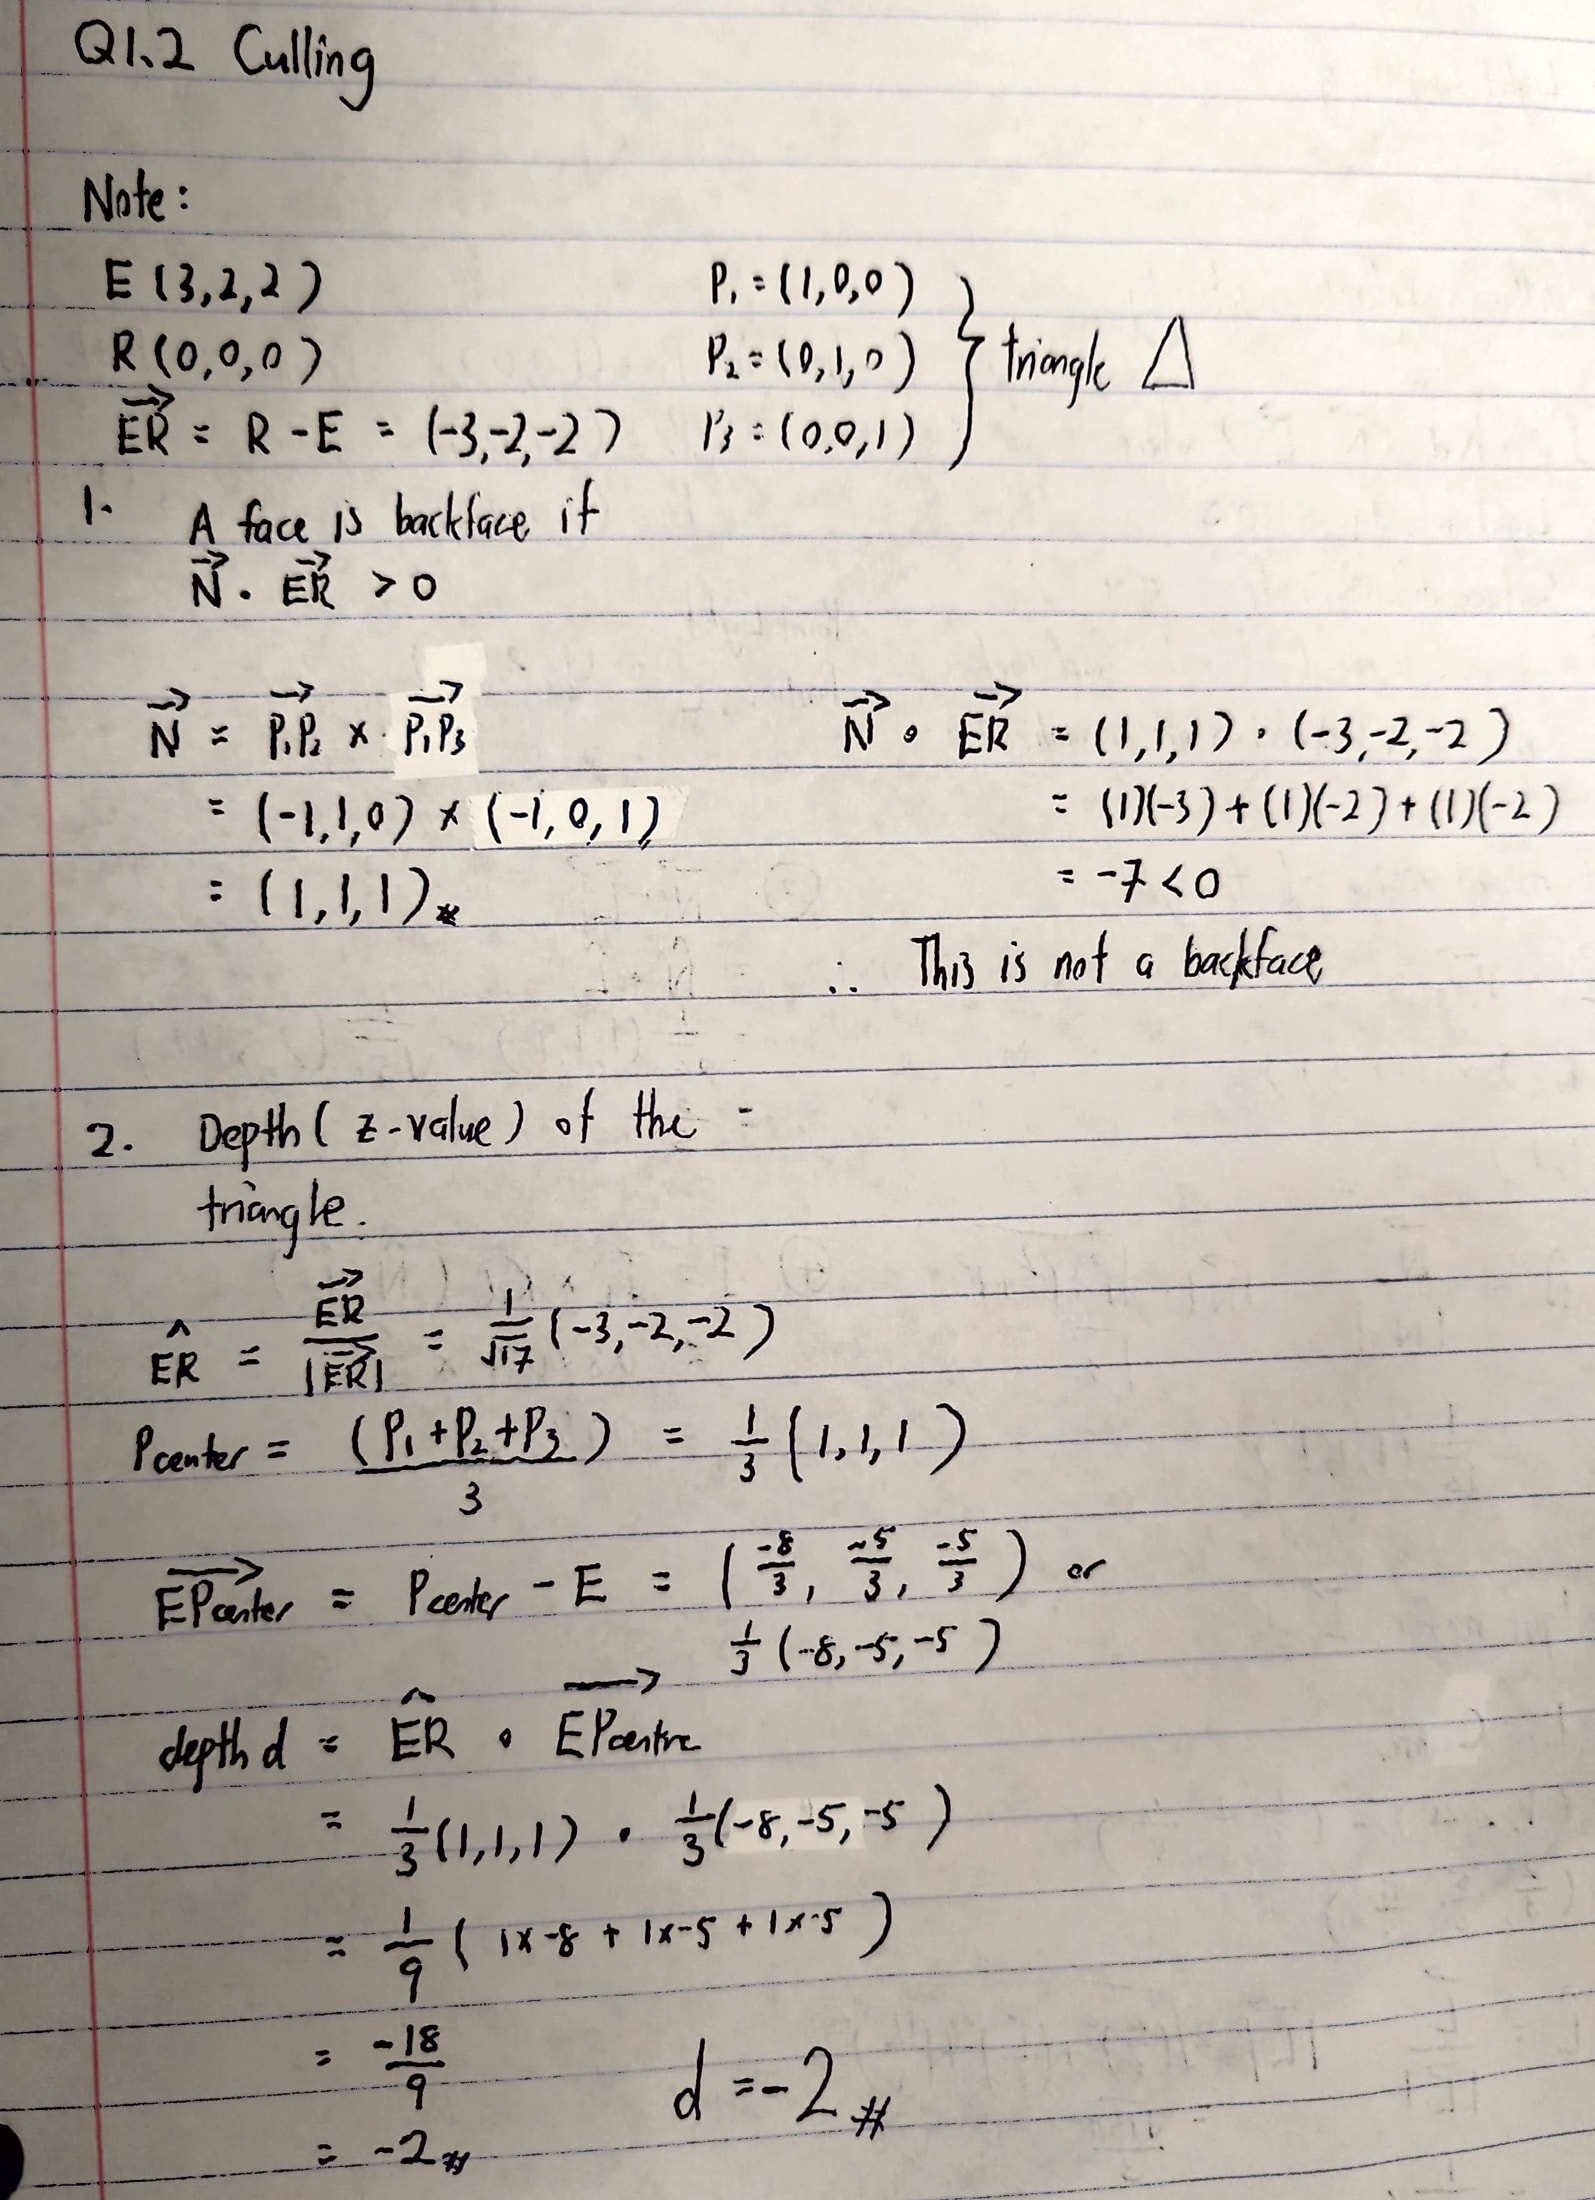 Q1.2 Culling
Note:
E (3,2,2) P₁ = (1,0,0)
R (0,0,0) P₂ = (0,1,0) } triangle △
ER = R - E = (-3,-2,-2) P₃ = (0,0,1)
1. A face is backface if
N · ER > 0
N = P₁P₂ × P₁P₃ N · ER = (1,1,1) · (-3,-2,-2)
= (-1,1,0) × (-1,0,1) = (1)(-3) + (1)(-2) + (1)(-2)
= (1,1,1) = -7 < 0
∴ This is not a backface
2. Depth ( z-value ) of the
triangle.
ÊR = ER / |ER| = 1/√17 (-3,-2,-2)
Pcenter = (P₁+P₂+P₃) / 3 = 1/3 (1,1,1)
EPcenter = Pcenter - E = ( -8/3, -5/3, -5/3 ) or
1/3 (-8,-5,-5)
depth d = ÊR · EPcentre
= 1/3 (1,1,1) · 1/3 (-8,-5,-5)
= 1/9 ( 1x-8 + 1x-5 + 1x-5 )
= -18/9 d = -2 #
= -2 #